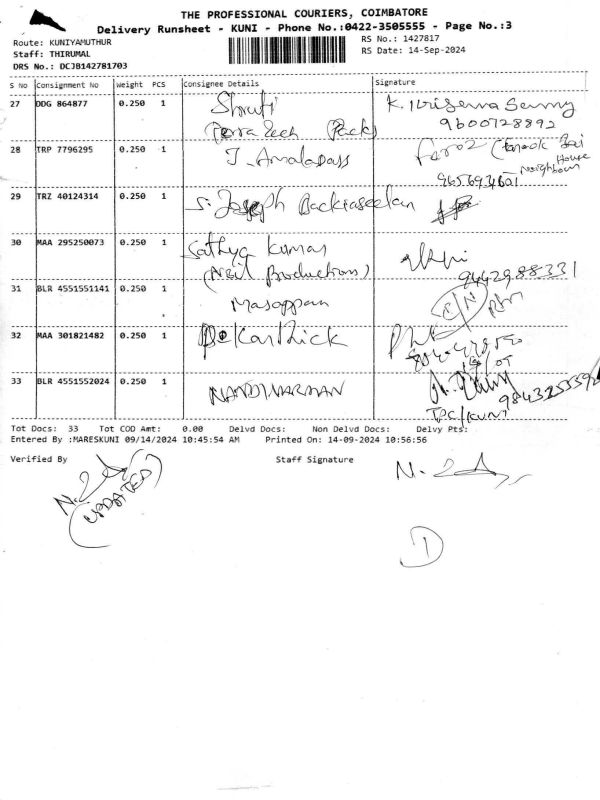 THE PROFESSIONAL COURIERS, COIMBATORE
Delivery Runsheet - KUNI - Phone No.:0422-3505555 - Page No.:3
Route: KUNIYAMUTHUR
RS No.: 1427817
Staff: THIRUMAL
RS Date: 14-Sep-2024
DRS No.: DCJB142781703
S No Consignment No Weight PCS Consignee Details Signature
27 DDG 864877 0.250 1 Shruti K. Krisena Samy
(Terra Tech Park) 9600728892
28 TRP 7796295 0.250 1 J. Amaladass Feroz
House
Neighbour
29 TRZ 40124314 0.250 1 S. Joseph Backiaseelan
30 MAA 295250073 0.250 1 Sathya Kumar
(Productions) 9442988331
31 BLR 4551551141 0.250 1 Masappan
32 MAA 301821482 0.250 1 P. Karthick
33 BLR 4551552024 0.250 1 NANDIVARMAN
TPC/KUNI
Tot Docs: 33 Tot COD Amt: 0.00 Delvd Docs: Non Delvd Docs: Delvy Pts:
Entered By :MARESKUNI 09/14/2024 10:45:54 AM Printed On: 14-09-2024 10:56:56
Verified By Staff Signature
(UPDATED)
1